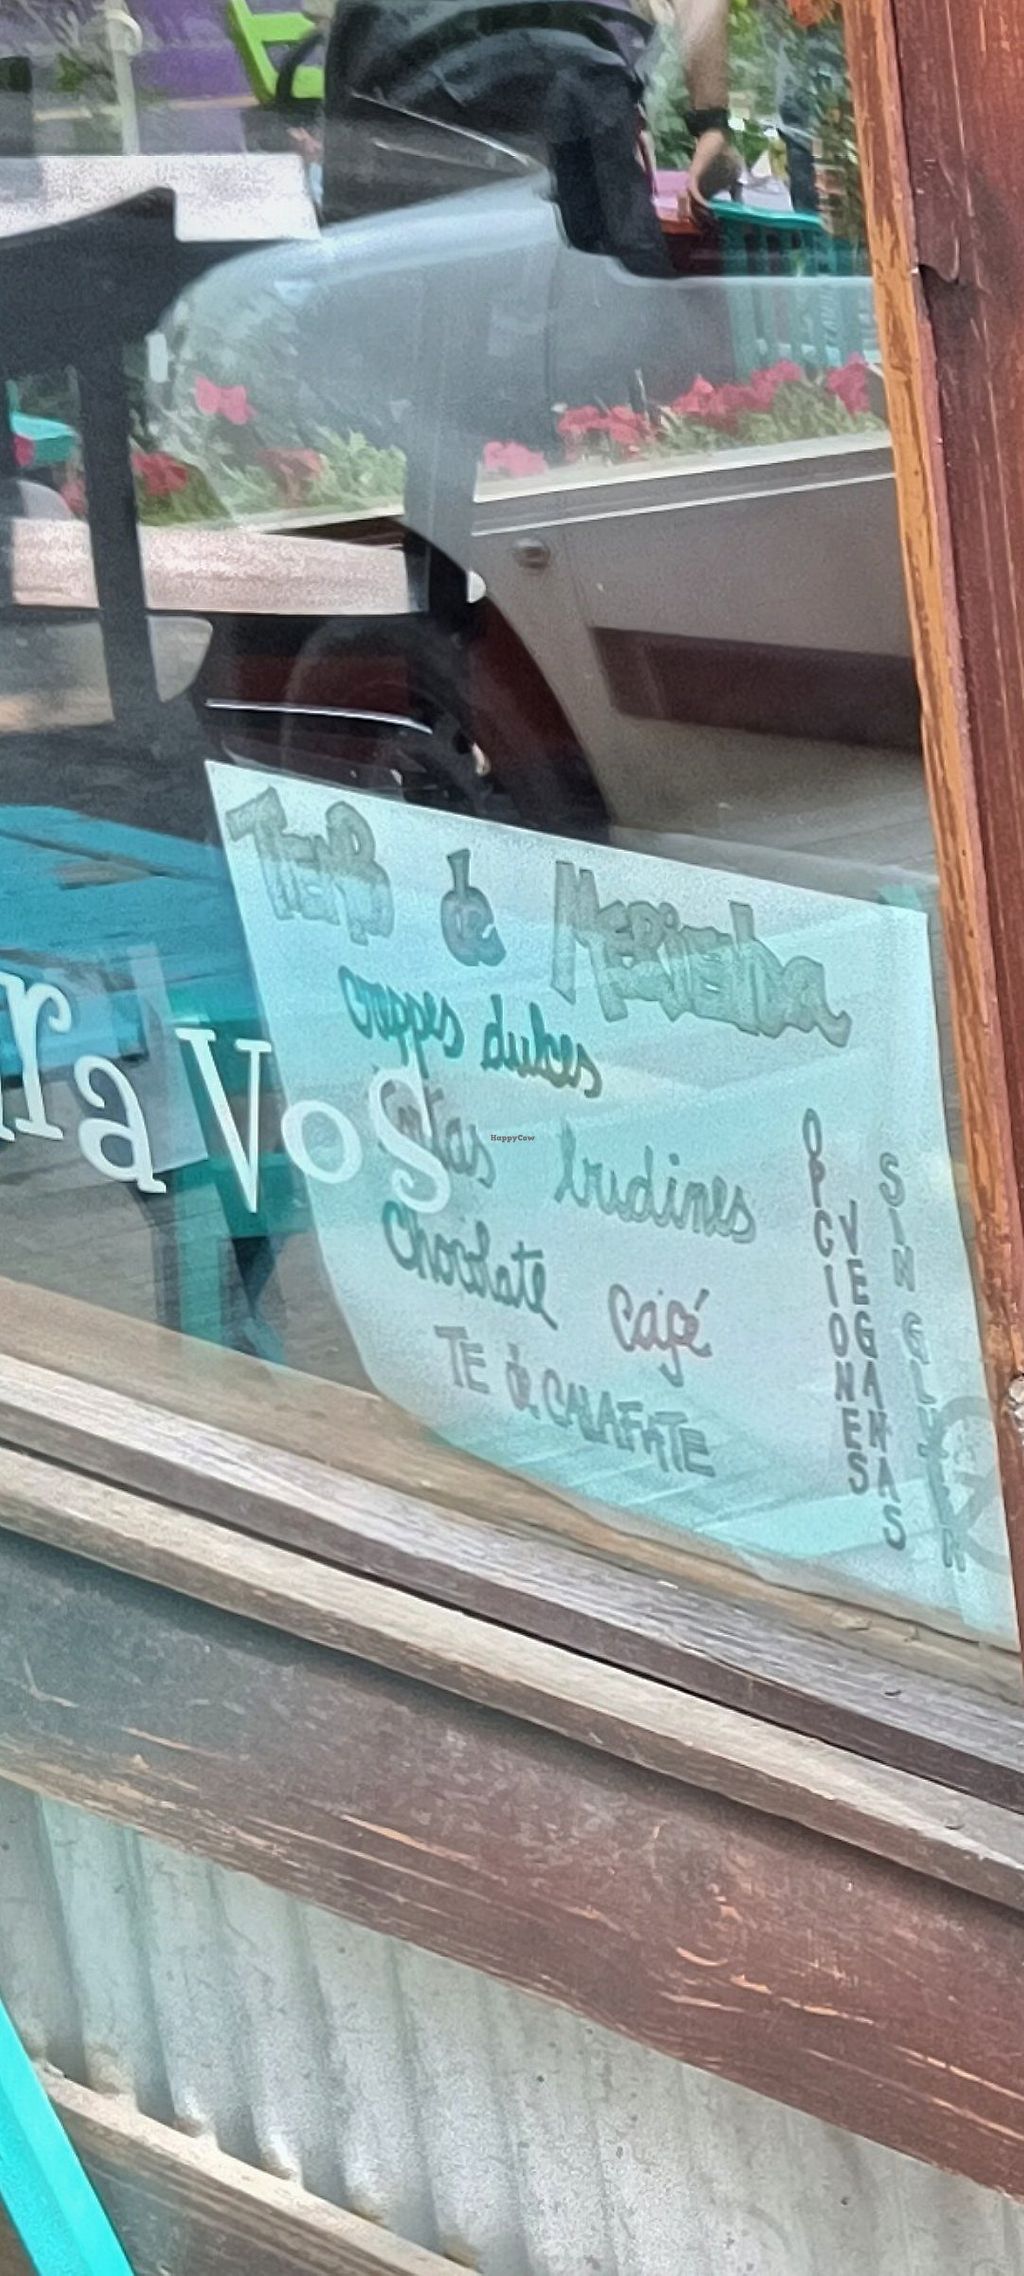 Tiempo de Merienda
creppes dulces
tortas budines
Chocolate café
TE de CALAFATE
OPCIONES
VEGANAS
SIN GLUTEN
ra Vos
HappyCow